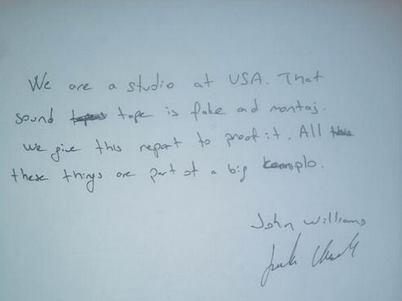 We are a studio at USA. That
sound tape is fake and montaj.
We give this report to proof it. All
these things are part of a big komplo.
John Williams